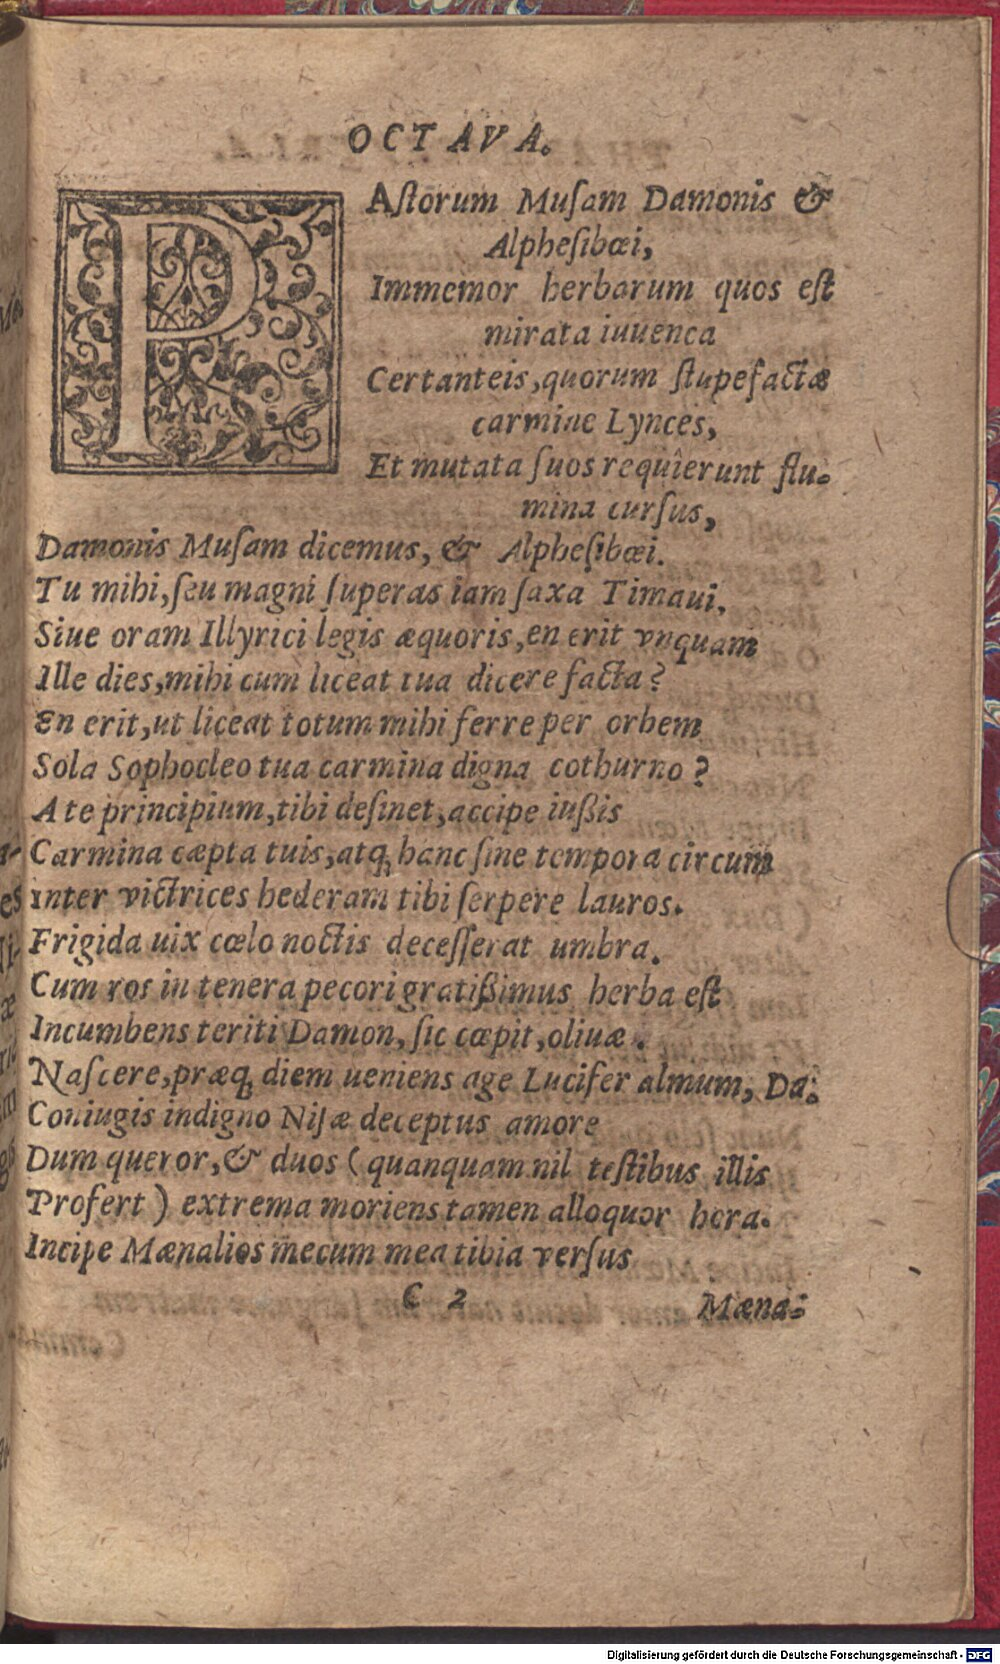 OCTAVA.
PAſtorum Muſam Damonis &
Alpheſibœi,
Immemor herbarum quos eſt
mirata iuuenca
Certanteis, quorum ſtupefactæ
carmine Lynces,
Et mutata ſuos requierunt flu-
mina curſus,
Damonis Muſam dicemus, & Alpheſibœi.
Tu mihi, ſeu magni ſuperas iam ſaxa Timaui,
Siue oram Illyrici legis æquoris, en erit vnquam
Ille dies, mihi cum liceat tua dicere facta?
En erit, ut liceat totum mihi ferre per orbem
Sola Sophocleo tua carmina digna cothurno?
A te principium, tibi deſinet, accipe iußis
Carmina cæpta tuis, atq; hanc ſine tempora circum
inter victrices hederam tibi ſerpere lauros.
Frigida uix cœlo noctis deceſſerat umbra.
Cum ros in tenera pecori gratißimus herba eſt
Incumbens teriti Damon, ſic cœpit, oliuæ.
Naſcere, præq; diem ueniens age Lucifer almum, Da:
Coniugis indigno Niſæ deceptus amore
Dum queror, & duos (quanquam nil teſtibus illis
Profert) extrema moriens tamen alloquor hora.
Incipe Mænalios mecum mea tibia verſus
C 2
Mæna-
Digitalisierung gefördert durch die Deutsche Forschungsgemeinschaft - DFG